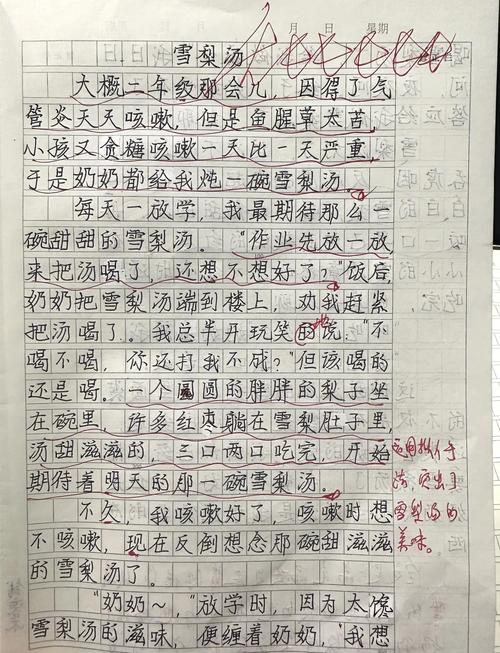 月 日 星期
雪梨汤
大概二年级那会儿，因得了气
管炎天天咳嗽，但是鱼腥草太苦，
小孩又贪糖咳嗽一天比一天严重，
于是奶奶都给我炖一碗雪梨汤。
每天一放学，我最期待那么一
碗甜甜的雪梨汤。“作业先放一放，
来把汤喝了，还想不想好了？”饭后，
奶奶把雪梨汤端到楼上，劝我赶紧
把汤喝了。我总半开玩笑的说：“不
地
喝不喝，你还打我不成？”但该喝的
还是喝。一个圆圆的胖胖的梨子坐
在碗里，许多红枣躺在雪梨肚子里，
汤甜滋滋的，三口两口吃完，开始
期待着明天的那一碗雪梨汤。
运用拟人手
法，突出了
雪梨汤的
美味。
不久，我咳嗽好了，咳嗽时想
不咳嗽，现在反倒想念那碗甜滋滋
的雪梨汤了。
“奶奶～，”放学时，因为太馋
雪梨汤的滋味，便缠着奶奶，“我想